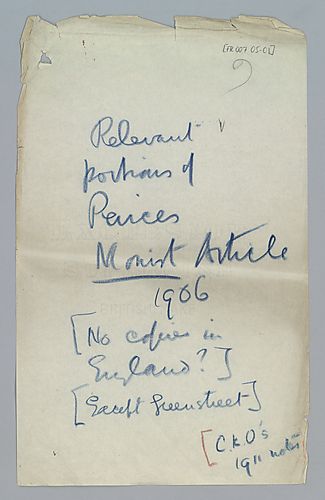 [FR007 05-01]
Relevant
portions of
Peirces
Monist Article
1906
[No copies in
England?]
[Except Greenstreet]
[C.K.O's
1911 notes